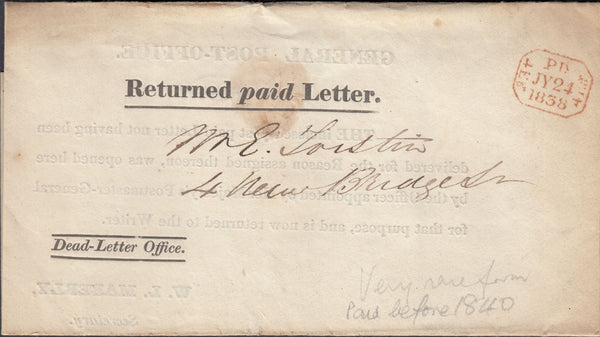 GENERAL POST-OFFICE.
PD
JY 24
1838
Returned paid Letter.
THE inclosed Post paid Letter not having been
delivered for the Reason assigned thereon, was opened here
by the Officer appointed by His Majesty's Postmaster-General
for that purpose, and is now returned to the Writer.
Mr E.
4 New Bridge St
Dead-Letter Office.
W. L. MABERLY,
Secretary.
Very rare form
Paid before 1840